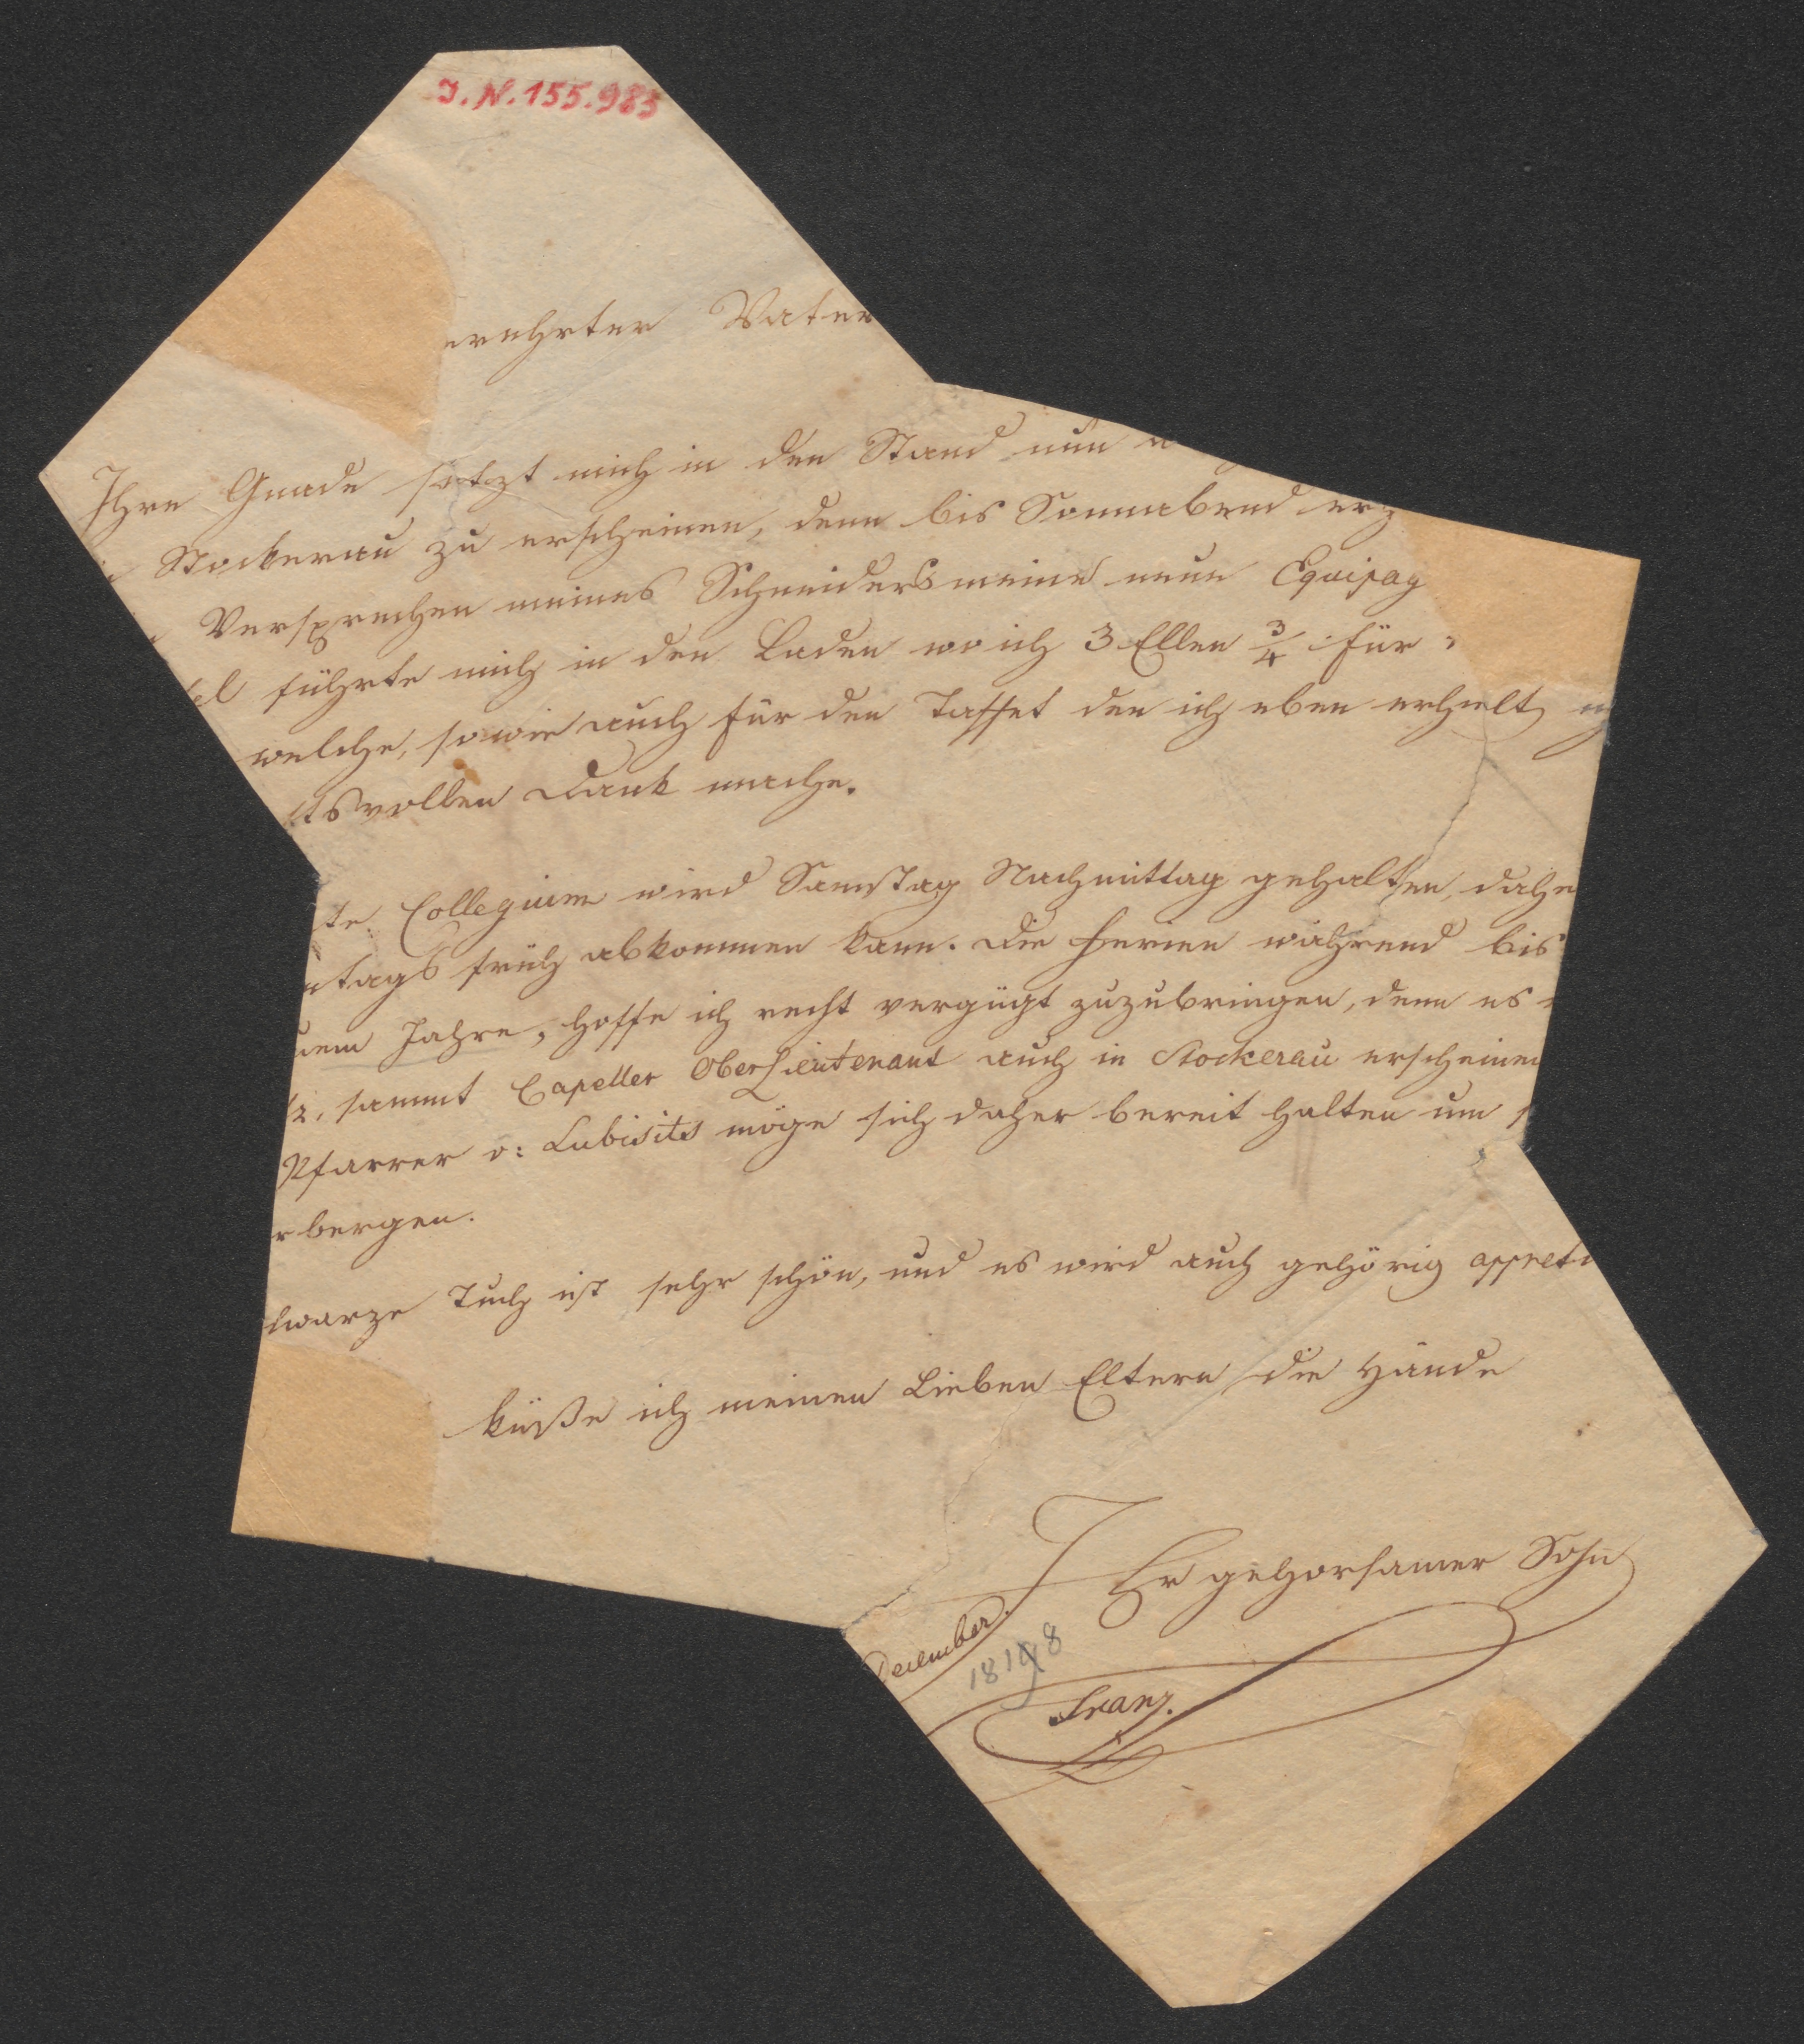 J.N. 155.985
erehrter Vater
Ihre Gnade setzt mich in den Stand nun
Stockerau zu erscheinen, denn bis Sonnabend er
Versprechen meines Schneiders meine neue Equipag
el führte mich in den Laden wo ich 3 Ellen 3/4 für
welche, so wie auch für den Taffet den ich eben erhielt
tsvollen Dank mache.
te Collegium wird Samstag Nachmittag gehalten, dahe
ntags früh abkommen kann. Die Ferien während bis
uem Jahre, hoffe ich recht vergügt zuzubringen, denn es
tz, sammt Capeller Oberlieutenant auch in Stockerau erscheinen
Pfarrer v: Lubisits möge sich daher bereit halten um
rbergen.
hwarze Tuch ist sehr schön, und es wird auch gehörig appreti
küße ich meinen Lieben Eltern die Hände
Ihr gehorsamer Sohn
December.
1818
Franz.